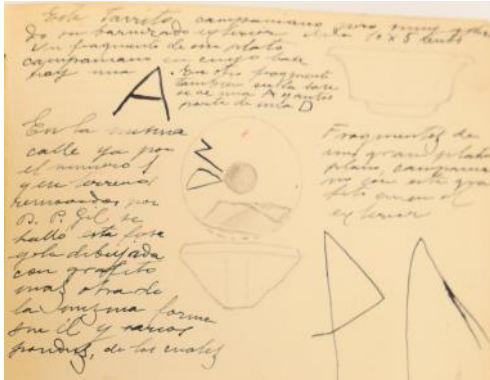 Este Tarrito campaniano pero muy gasta
do su barnizado exterior mide 10 x 5
Un fragmento de un plato
campaniano en cuya base
hay una A. En otro fragmento
tambien en la base
se ve una A y antes
parte de una D
En la misma
calle ya por
el numero 1
y en terrenos
removidos por
D. P. Gil se
halló esta
dibujada
con grafito
mas otra de
la misma forma
sin él y varios
pondus, de los cuales
Fragmentos de
un gran plato
plano, campania
no con este gra
fito en el
exterior